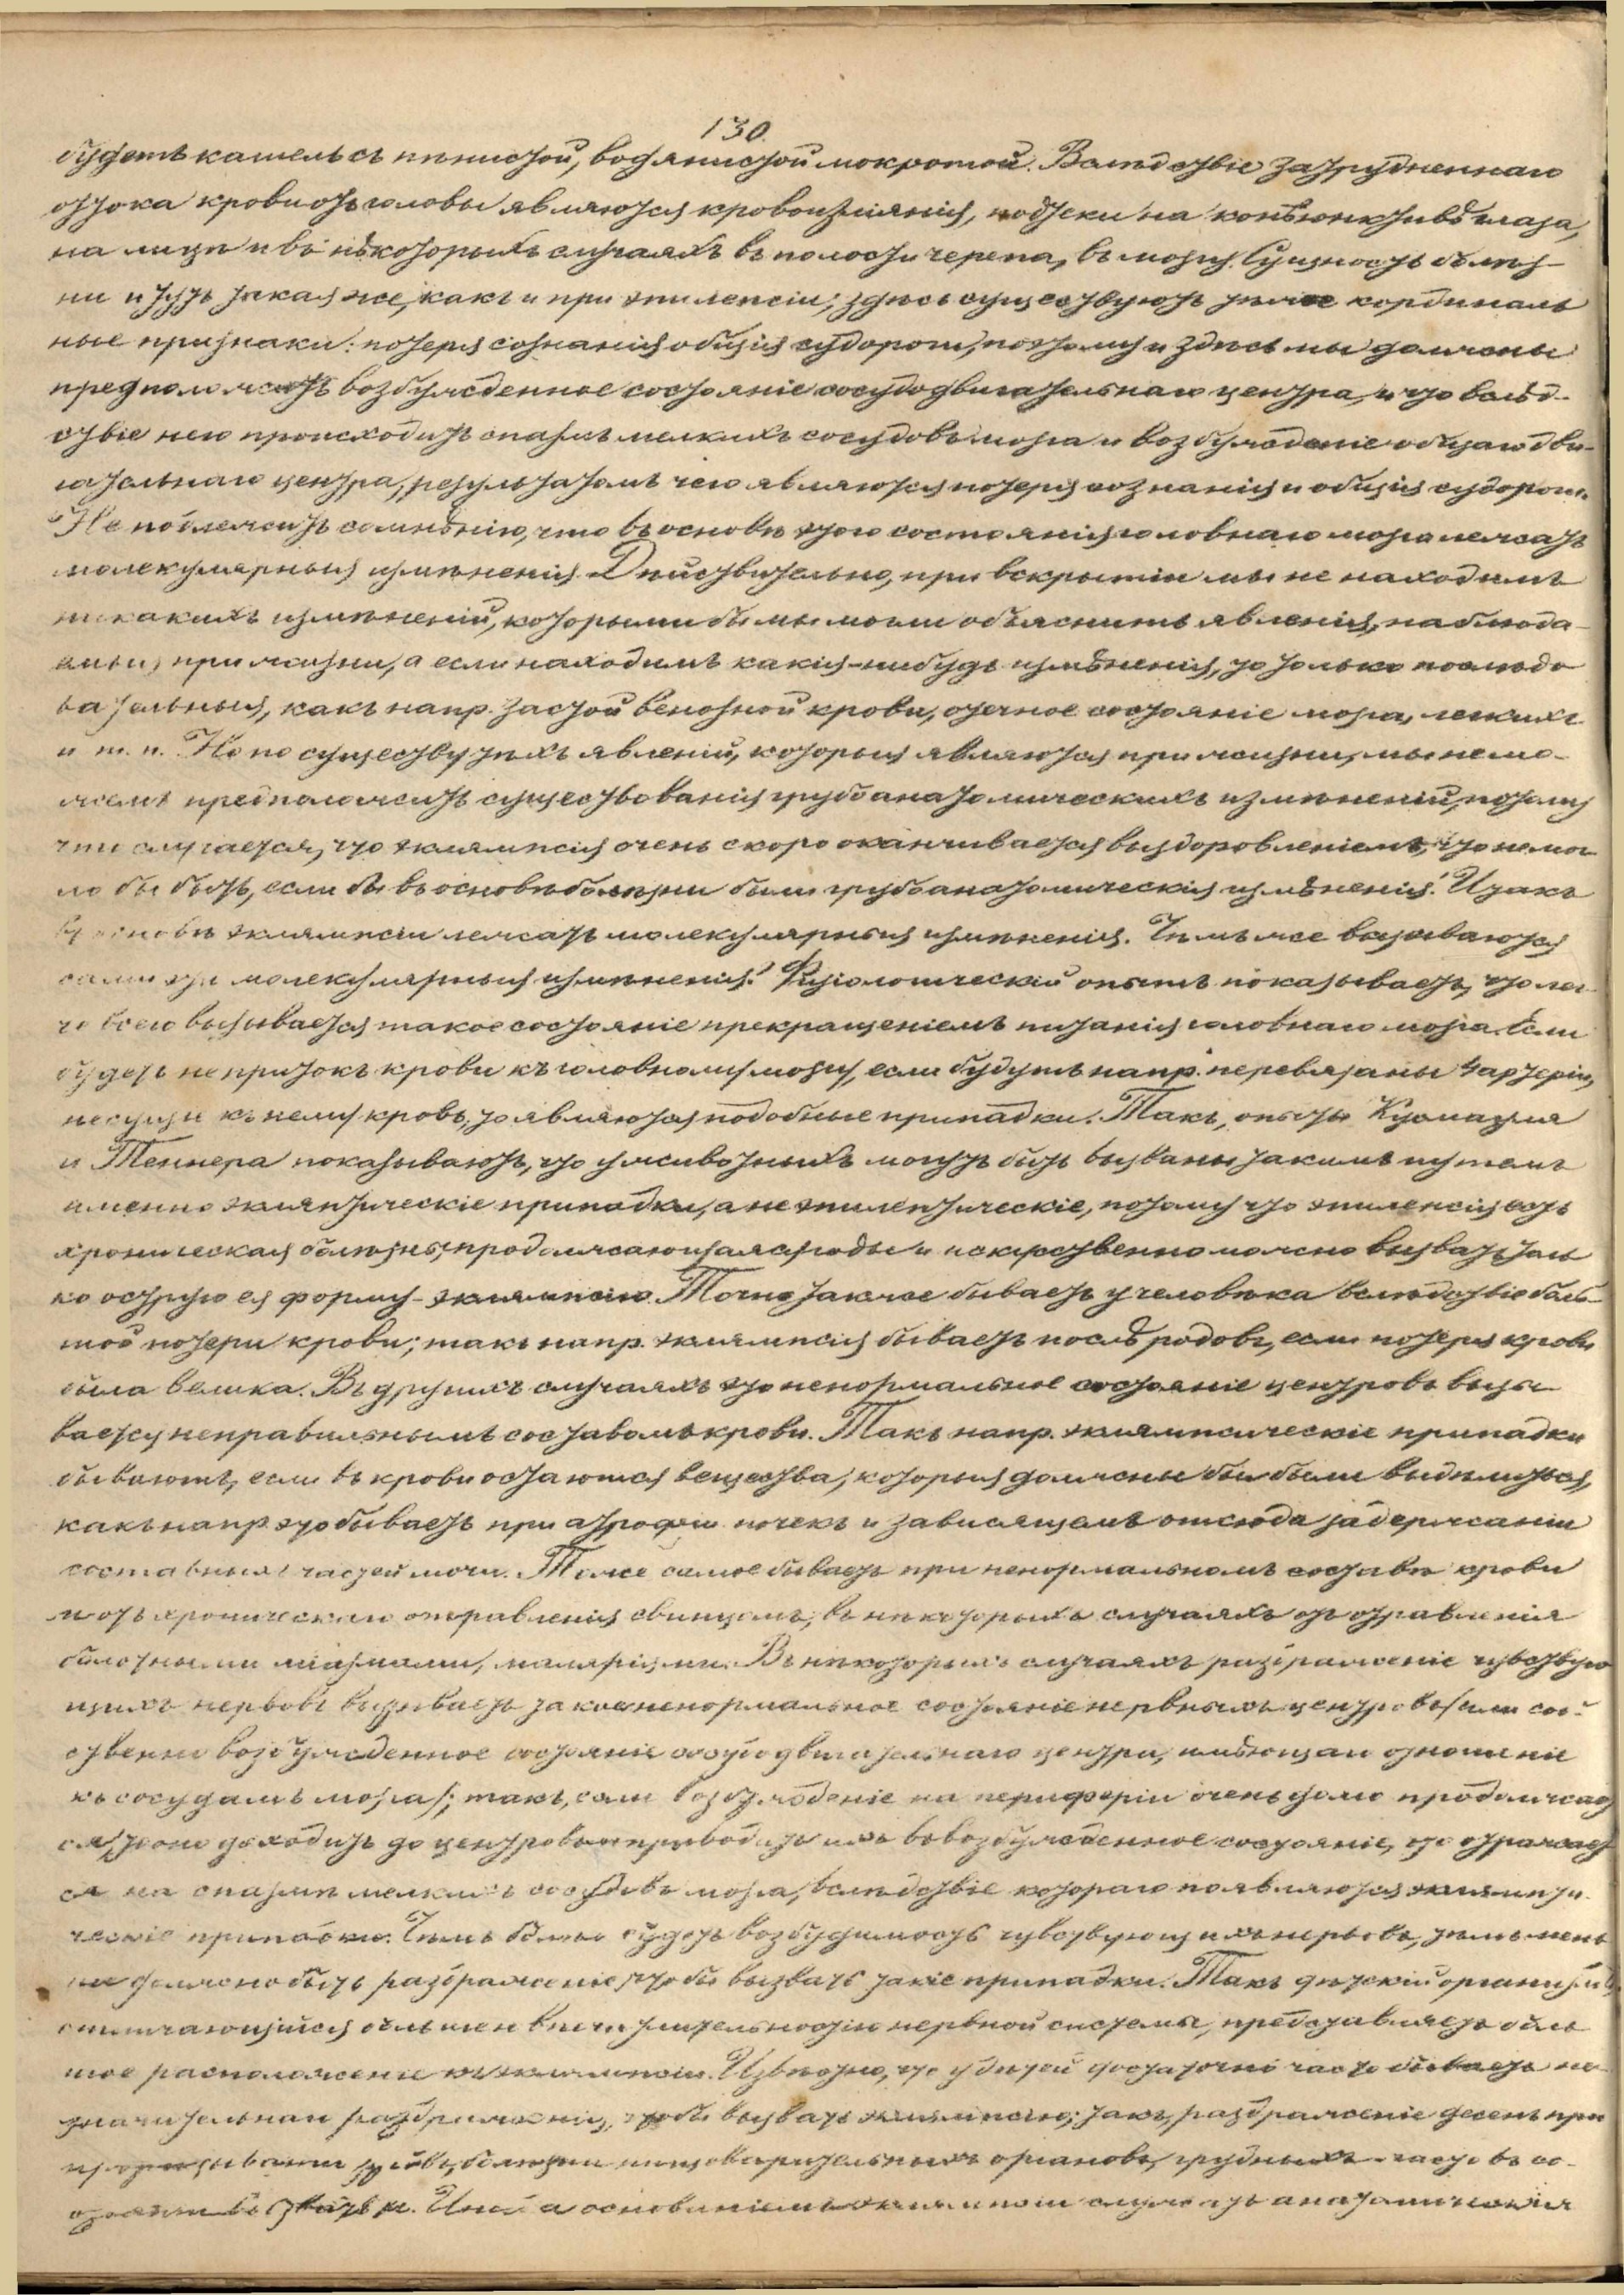 130.
будетъ кашель съ пѣнистой, водянистой мокротой. Вслѣдствіе затрудненнаго
оттока крови отъ головы являются кровоизліянія, подтеки на конъюнктивѣ глаза,
на лицѣ и въ нѣкоторыхъ случаяхъ въ полости черепа, въ мозгу. Сущность болѣз-
ни и тутъ такая же, какъ и при эпилепсіи; здѣсь существуютъ тѣ же кординаль
ные признаки: потеря сознанія общія судороги, поэтому и здѣсь мы должны
предположить возбужденное состояніе сосудодвигательнаго центра, и что вслѣд-
ствіе него происходитъ спазмъ мелкихъ сосудовъ мозга и возбужденіе общаго дви-
гательнаго центра, результатомъ чего являются потеря сознанія и общія судороги.
Не подлежитъ сомнѣнію, что въ основѣ этого состоянія головнаго мозга лежатъ
молекулярныя измѣненія. Дѣйствительно, при вскрытіи мы не находимъ
никакихъ измѣненій, которыми бы мы могли объяснить явленія, наблюда-
емыя при жизни, а если находимъ какія-нибудь измѣненія, то только послѣдо
вательныя, какъ напр. застой венозной крови, отечное состояніе мозга, легкихъ
и т. п. Но по существу тѣхъ явленій, которыя являются при жизни, мы не мо-
жемъ предположить существованія грубо анатомическихъ измѣненій, потому
что случается, что эклямпсія очень скоро оканчивается выздоровленіемъ, что не мог
ло бы быть, если бы въ основѣ болѣзни были грубо анатомическія измѣненія. Итакъ
въ основѣ эклямпсіи лежатъ молекулярныя измѣненія. Чѣмъ же вызываются
сами эти молекулярныя измѣненія? Физіологическій опытъ показываетъ, что лег-
че всего вызывается такое состояніе прекращеніемъ питанія головнаго мозга. Если
будетъ не притокъ крови къ головному мозгу, если будутъ напр. перевязаны 4 артеріи,
несущія къ нему кровь, то являются подобные припадки. Такъ, опыты Кусмауля
и Теннера показываютъ, что у животныхъ могутъ быть вызваны такимъ путемъ
именно эклямптическіе припадки, а не эпилептическіе, потому что эпилепсія есть
хроническая болѣзнь, продолжающаяся годы и искусственно можно вызвать толь
ко острую ея форму - эклямпсію. Точно также бываетъ у человѣка вслѣдствіе боль-
шой потери крови; такъ напр. эклямпсія бываетъ послѣ родовъ, если потеря крови
была велика. Въ другихъ случаяхъ это ненормальное состояніе центровъ вызы-
вается неправильнымъ составомъ крови. Такъ напр. эклямпсическіе припадки
бываютъ, если въ крови остаются вещества, которыя должны бы были выдѣлиться,
какъ напр это бываетъ при атрофіи почекъ и зависящемъ отсюда задержаніи
составныхъ частей мочи. Тоже самое бываетъ при ненормальномъ составѣ крови
и отъ хроническаго отравленія свинцомъ, въ нѣкоторыхъ случаяхъ отъ отравленія
болотными міазмами, маляріями. Въ нѣкоторыхъ случаяхъ раздраженіе чувствую
щихъ нервовъ вызываетъ такое ненормальное состояніе нервныхъ центровъ (или соб-
ственно возбужденное состояніе сосудодвигательнаго центра, имѣющаго отношеніе
къ сосудамъ мозга); такъ, если возбужденіе на периферіи очень долго продолжает
ся, то оно доходитъ до центровъ и приводитъ ихъ въ возбужденное состояніе, что отражает
ся на спазмѣ мелкихъ сосудовъ мозга, вслѣдствіе котораго появляются эклямпти-
ческіе припадки. Чѣмъ болѣе будетъ возбудимость чувствующихъ нервовъ, тѣмъ мень
ше должно быть раздраженіе, чтобы вызвать такіе припадки. Такъ дѣтскій организмъ,
отличающійся большей впечатлительностію нервной системы, представляетъ боль
шое расположеніе къ эклямпсіи. Извѣстно, что у дѣтей достаточно часто бываетъ не-
значительнаго раздраженія, чтобы вызвать эклямпсію; такъ, раздраженіе десенъ при
прорѣзываніи зубовъ, болѣзни пищеварительныхъ органовъ, грудныхъ часто въ со-
стояніи вызвать ее. Иногда основаніемъ эклямпсіи служатъ анатомическія